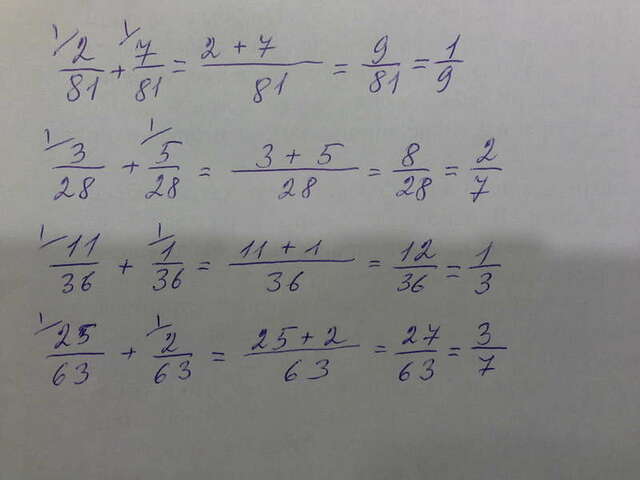 1/ 2/81 + 1/ 7/81 = (2 + 7)/81 = 9/81 = 1/9
1/ 3/28 + 1/ 5/28 = (3 + 5)/28 = 8/28 = 2/7
1/ 11/36 + 1/ 1/36 = (11 + 1)/36 = 12/36 = 1/3
1/ 25/63 + 1/ 2/63 = (25 + 2)/63 = 27/63 = 3/7